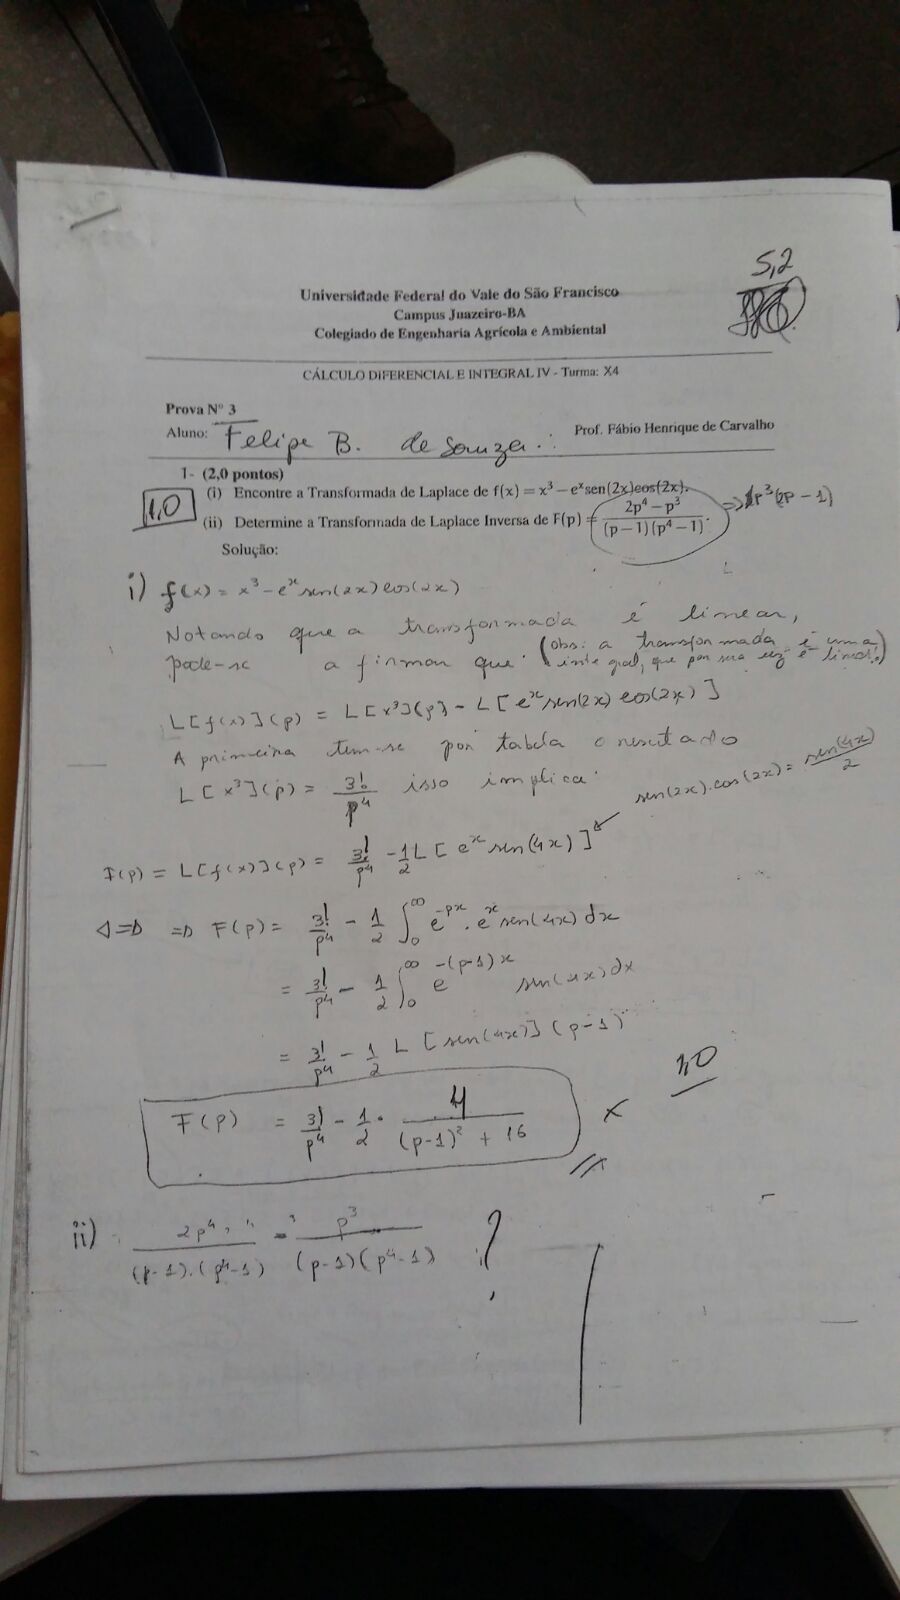 5,2
Universidade Federal do Vale do São Francisco
Campus Juazeiro-BA
Colegiado de Engenharia Agrícola e Ambiental
CÁLCULO DIFERENCIAL E INTEGRAL IV - Turma: X4
Prova N° 3
Aluno: Felipe B. de Souza. Prof. Fábio Henrique de Carvalho
1- (2,0 pontos)
1,0
(i) Encontre a Transformada de Laplace de f(x) = x³ − eˣsen(2x)cos(2x).
(ii) Determine a Transformada de Laplace Inversa de F(p) = (2p⁴ − p³)/((p − 1)(p⁴ − 1)). ⇒ p³(2p − 1)
Solução:
i) f(x) = x³ − eˣ sen(2x) cos(2x)
Notando que a transformada é linear,
pode-se afirmar que: (obs: a transformada é uma
integral, que por sua vez é linear!)
L[f(x)](p) = L[x³](p) − L[eˣ sen(2x) cos(2x)]
A primeira tem-se por tabela o resultado
L[x³](p) = 3!/p⁴ isso implica:
sen(2x).cos(2x) = sen(4x)/2
F(p) = L[f(x)](p) = 3!/p⁴ − 1/2 L[eˣ sen(4x)]
⇒ F(p) = 3!/p⁴ − 1/2 ∫₀^∞ e^(−px) . eˣ sen(4x) dx
= 3!/p⁴ − 1/2 ∫₀^∞ e^(−(p−1)x) sen(4x) dx
= 3!/p⁴ − 1/2 L[sen(4x)](p−1)
F(p) = 3!/p⁴ − 1/2 · 4/((p−1)² + 16) × 1,0
ii) 2p⁴/((p−1).(p⁴−1)) − p³/((p−1)(p⁴−1)) ?